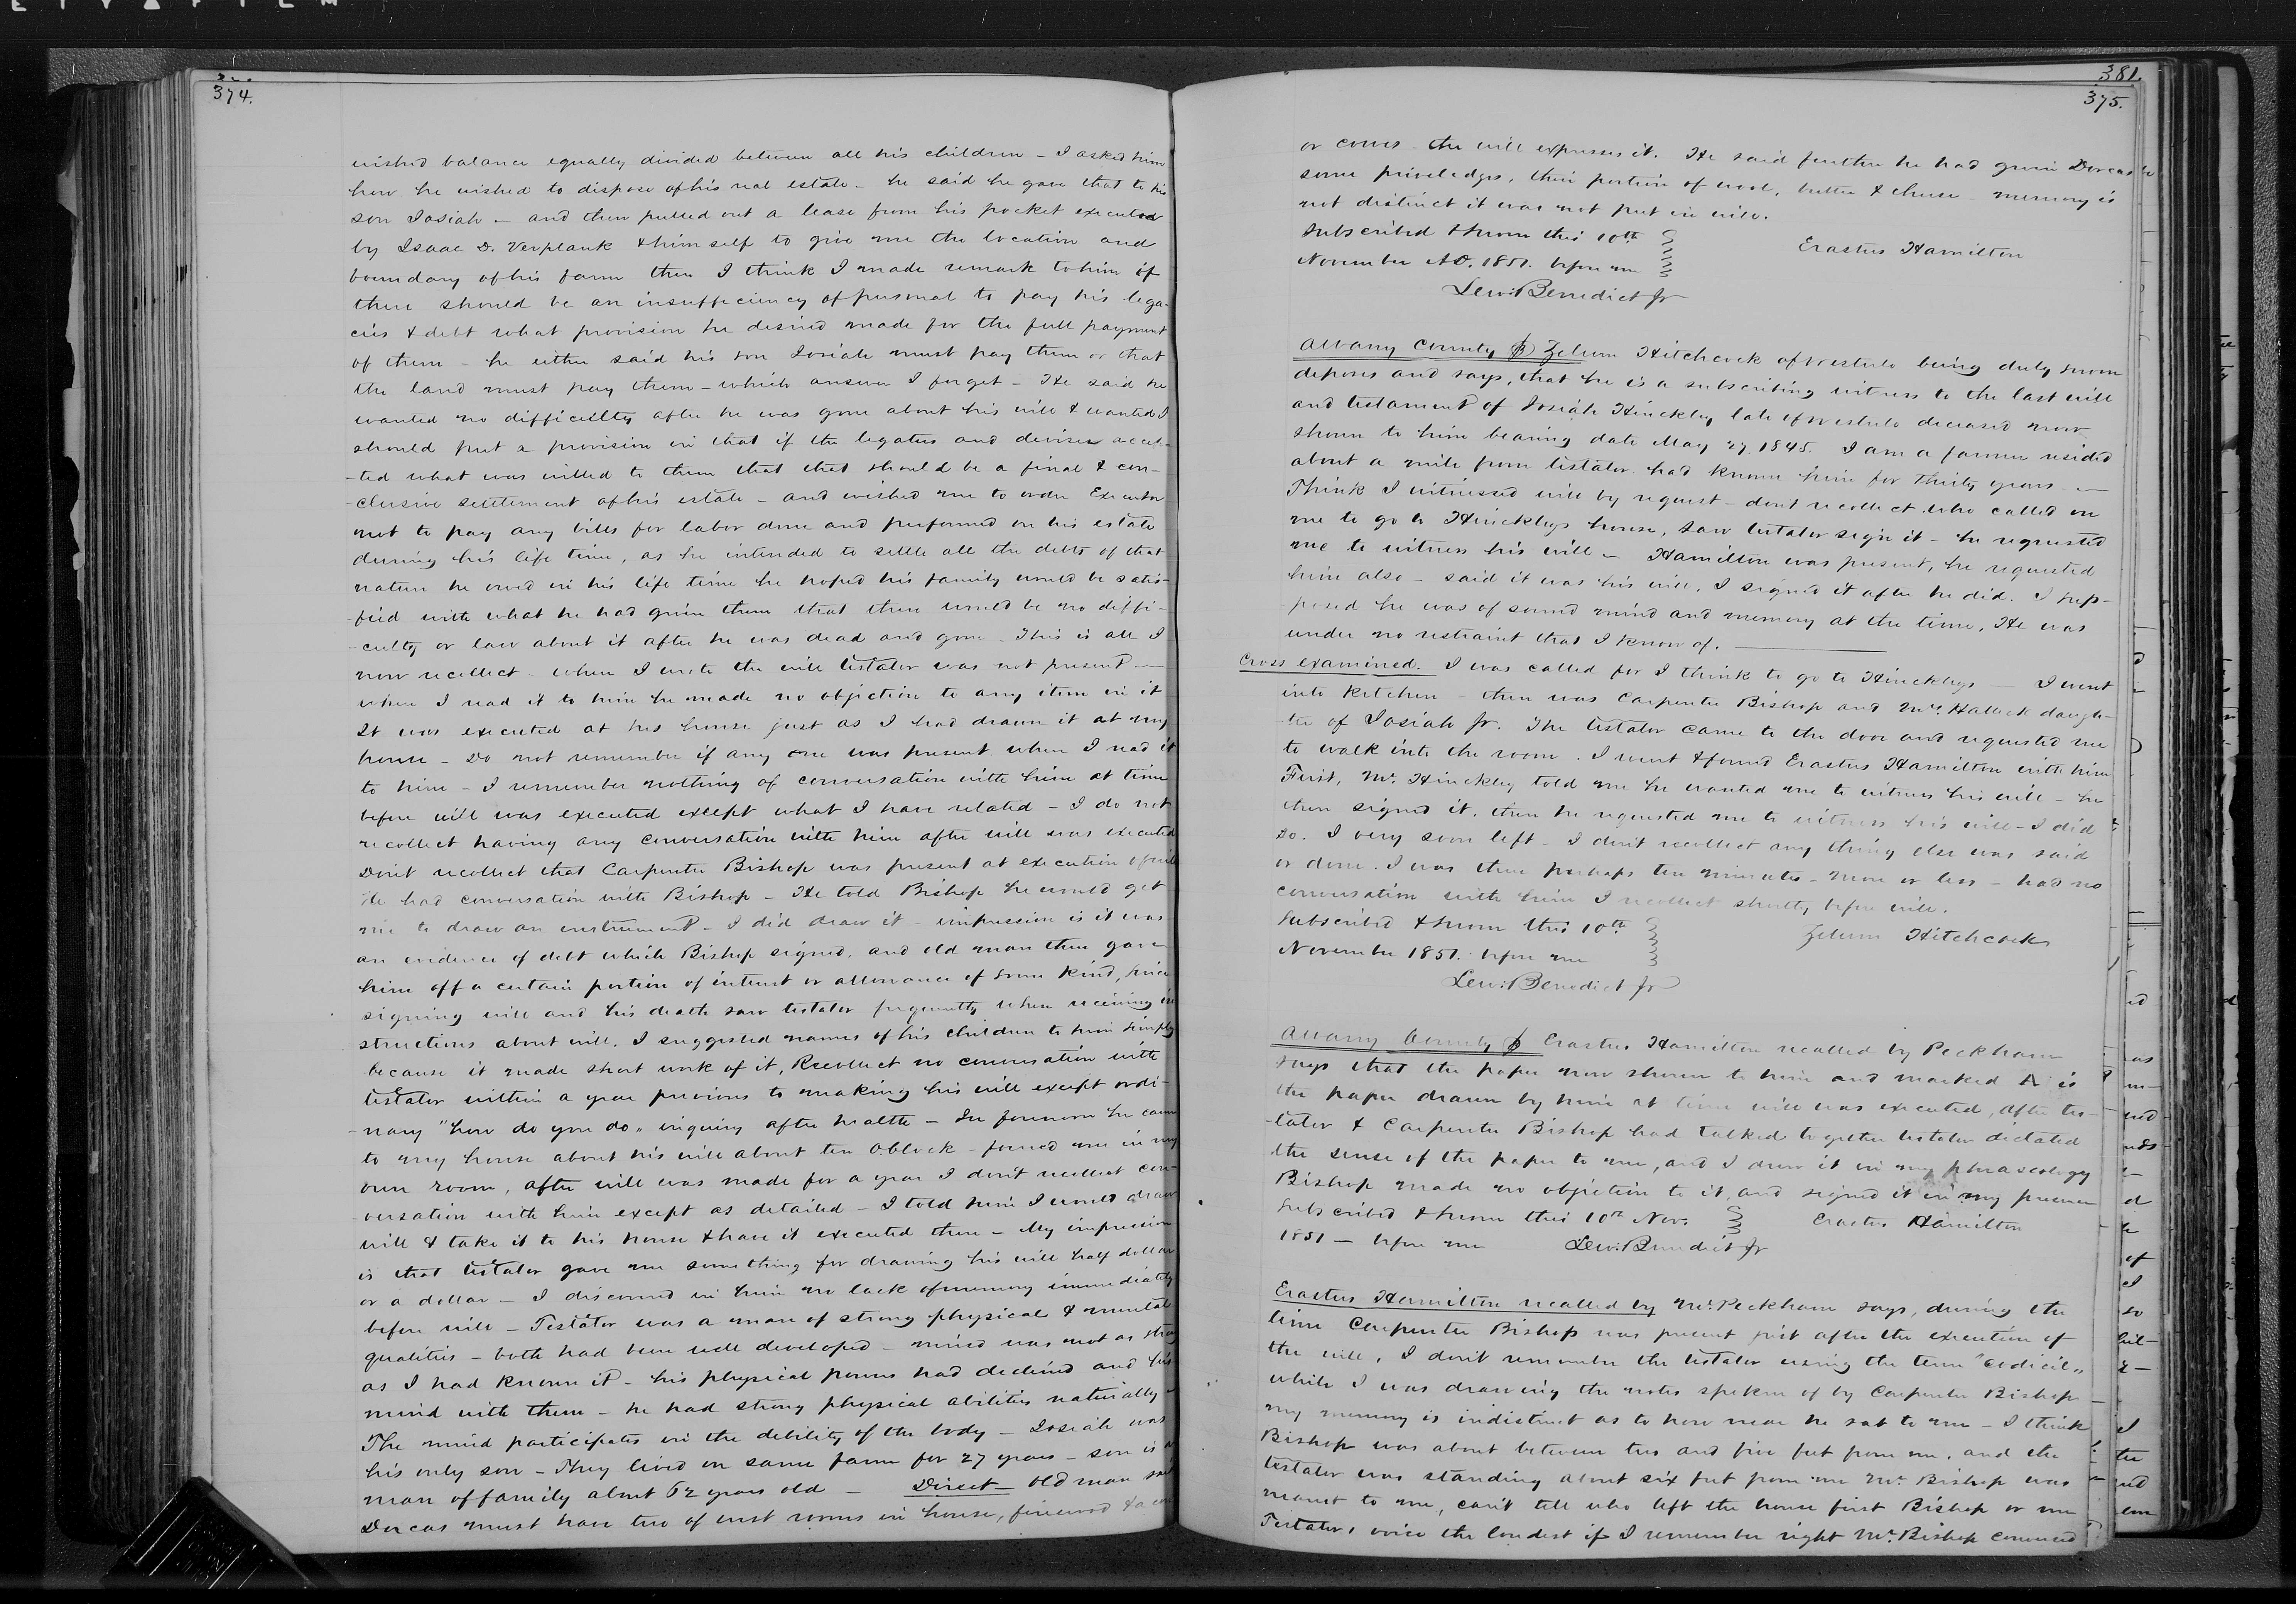 374.
wished balance equally divided between all his children – I asked him
how he wished to dispose of his real estate – he said he gave that to his
son Josiah – and then pulled out a lease from his pocket executed
by Isaac D. Verplank & himself to give me the location and
boundary of his farm then I think I made remark to him if
there should be an insufficiency of personal to pay his lega-
cies & debt what provision he desired made for the full payment
of them – he either said his son Josiah must pay them or that
the land must pay them – which answer I forget – He said he
wanted no difficulty after he was gone about his will & wanted I
should put a provision in that if the legatees and devisees accep-
-ted what was willed to them that that should be a final & con-
-clusive settlement of his estate – and wished me to order Executor
not to pay any bills for labor done and performed on his estate
during his life time, as he intended to settle all the debts of that
nature he owed in his life time he hoped his family would be satis-
-fied with what he had given them that there would be no diffi-
-culty or law about it after he was dead and gone – This is all I
now recollect – when I wrote the will testator was not present –
when I read it to him he made no objection to any item in it
It was executed at his house just as I had drawn it at my
house – Do not remember if any one was present when I read it
to him – I remember nothing of conversation with him at time
before will was executed except what I have related – I do not
recollect having any conversation with him after will was executed
Don't recollect that Carpenter Bishop was present at execution of will
He had conversation with Bishop – He told Bishop he would get
me to draw an instrument – I did draw it – impression is it was
an evidence of debt which Bishop signed, and old man then gave
him off a certain portion of interest or allowance of some kind, since
signing will and his death saw testator frequently when receiving in
structions about will, I suggested names of his children to him simply
because it made short work of it, Recollect no conversation with
testator within a year previous to making his will except ordi-
-nary "how do you do" inquiry after health – In forenoon he came
to my house about his will about ten Oclock – found me in my
own room, after will was made for a year I don't recollect con-
-versation with him except as detailed – I told him I would draw
will & take it to his house & have it executed there – My impression
is that testator gave me something for drawing his will half dollar
or a dollar – I discerned in him no lack of memory immediately
before will – Testator was a man of strong physical & mental
qualities – both had been well developed – mind was not as strong
as I had known it – his physical powers had declined and his
mind with them – he had strong physical abilities naturally –
The mind participates in the debility of the body – Josiah was
his only son – They lived on same farm for 27 years – son is a
man of family about 52 years old – Direct – old man said
Dorcas must have two of west rooms in house, firewood & a cow
381.
375.
or cows – the will expresses it. He said further he had given Dorcas
some priviledges, their portion of wool, butter & cheese – memory is
not distinct it was not put in will.
Subscribed & sworn this 10th
November A.D. 1851. before me
Erastus Hamilton
Lew: Benedict Jr
Albany County ss Zelum Hitchcock of Westerlo being duly sworn
deposes and says, that he is a subscribing witness to the last will
and testament of Josiah Hinckley late of Westerlo deceased now
shown to him bearing date May 27 1845. I am a farmer resided
about a mile from testator. had known him for thirty years –
Think I witnessed will by request – don't recollect who called on
me to go to Hinckleys house, saw testator sign it – he requested
me to witness his will – Hamilton was present, he requested
him also – said it was his will, I signed it after he did. I sup-
-posed he was of sound mind and memory at the time, He was
under no restraint that I know of.
Cross examined. I was called for I think to go to Hinckleys I went
into Kitchen – there was Carpenter Bishop and Mrs. Hallock daugh-
-ter of Josiah Jr. The testator came to the door and requested me
to walk into the room. I went & found Erastus Hamilton with him
First, Mr. Hinckley told me he wanted me to witness his will – he
then signed it, then he requested me to witness his will – I did
so. I very soon left – I don't recollect any thing else was said
or done. I was there perhaps ten minutes – more or less – had no
conversation with him I recollect shortly before will.
Subscribed & sworn this 10th
November 1851. before me
Zelum Hitchcock
Lew: Benedict Jr
Albany County ss Erastus Hamilton recalled by Peckham
says that the paper now shown to him and marked A is
the paper drawn by him at time will was executed, after tes-
-tator & Carpenter Bishop had talked together testator dictated
the sense of the paper to me, and I drew it in my phraseology
Bishop made no objection to it, and signed it in my presence
Subscribed & sworn this 10th Nov.
1851 – before me
Erastus Hamilton
Lew: Benedict Jr
Erastus Hamilton recalled by Mr. Peckham says, during the
time Carpenter Bishop was present just after the execution of
the will, I don't remember the testator using the term "codicil"
while I was drawing the notes spoken of by Carpenter Bishop –
my memory is indistinct as to how near he sat to me – I think
Bishop was about between two and five feet from me, and the
testator was standing about six feet from me Mr. Bishop was
nearest to me, can't tell who left the house first Bishop or me
Testators voice the loudest if I remember right Mr. Bishop conversed